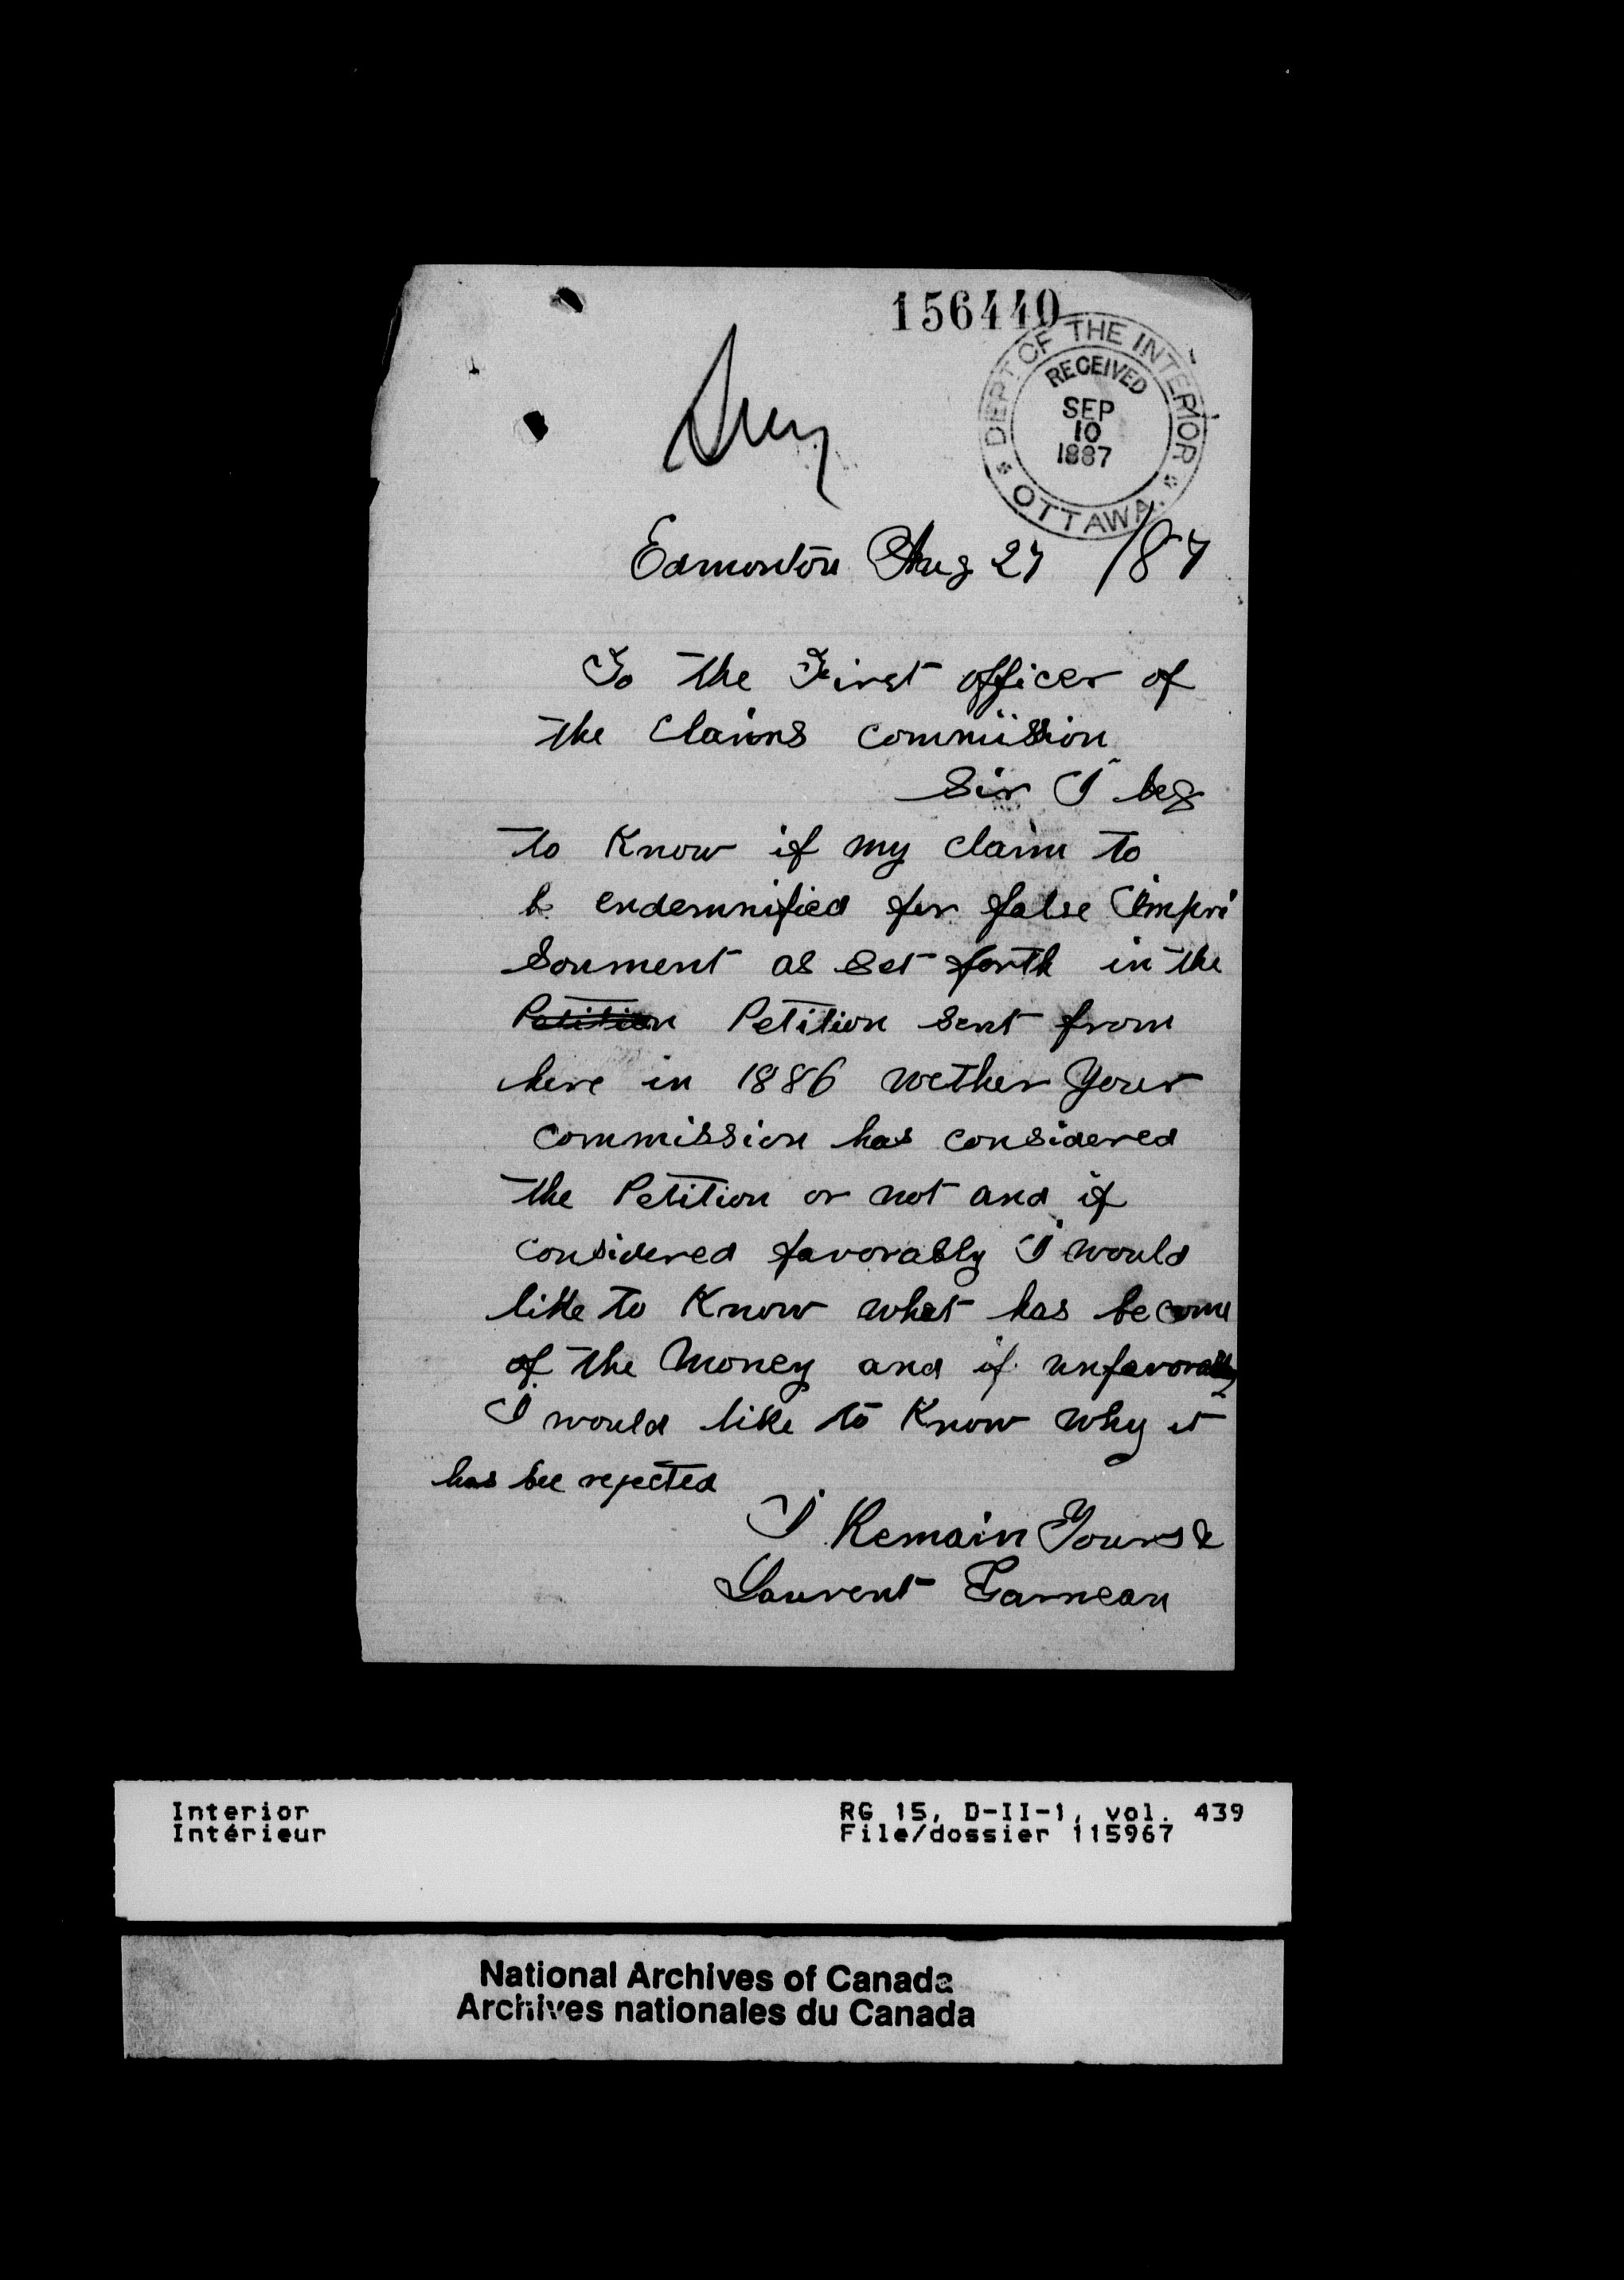 156440
DEPT OF THE INTERIOR
RECEIVED
SEP
10
1887
OTTAWA.
Edmonton Aug 27 /87
To the First officer of
the Claims commission
Sir I beg
to Know if my claim to
be endemnified for false Impri
sonment as set forth in the
Petition Petition sent from
here in 1886 wether your
commission has considered
the Petition or not and if
considered favorably I would
like to Know what has become
of the Money and if unfavorably
I would like to Know why it
has bee rejected
I Remain Yours &
Laurent Garneau
Interior
Intérieur
RG 15, D-II-1, vol. 439
File/dossier 115967
National Archives of Canada
Archives nationales du Canada